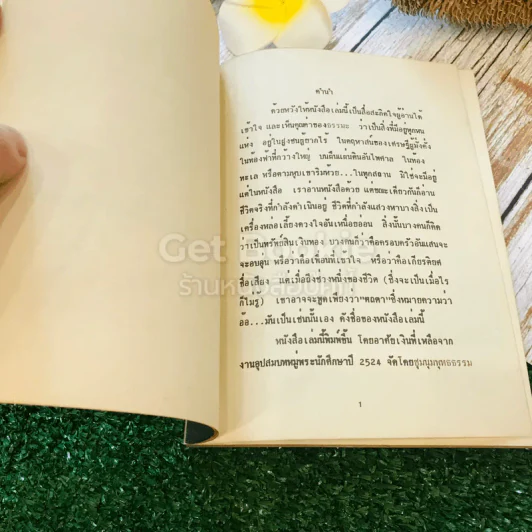 คำนำ
ด้วยหวังให้หนังสือเล่มนี้เป็นสื่อสะกิดใจผู้อ่านได้
เข้าใจ และเห็นคุณค่าของธรรมะ ว่าเป็นสิ่งที่มีอยู่ทุกหน
แห่ง อยู่ในฝูงชนผู้ยากไร้ ในคฤหาสน์ของเศรษฐีผู้มั่งคั่ง
ในท้องฟ้าที่กว้างใหญ่ บนผืนแผ่นดินอันไพศาล ในท้อง
ทะเล หรือตามหุบเขาริมห้วย...ในทุกสถาน มิใช่จะมีอยู่
แต่ในหนังสือ เราอ่านหนังสือด้วย แต่ขณะเดียวกันก็อ่าน
ชีวิตจริงที่กำลังดำเนินอยู่ ชีวิตที่กำลังแสวงหาบางสิ่งเป็น
เครื่องหล่อเลี้ยงดวงใจอันเหนื่อยอ่อน สิ่งนั้นบางคนก็คิด
ว่าเป็นทรัพย์สินเงินทอง บางคนก็ว่าคือครอบครัวอันแสนจะ
อบอุ่น หรือว่าคือเพื่อนที่เข้าใจ หรือว่าคือเกียรติยศ
ชื่อเสียง แต่เมื่อถึงช่วงหนึ่งของชีวิต (ซึ่งจะเป็นเมื่อไร
ก็ไม่รู้) เขาอาจจะพูดเพียงว่า"ตถตา"ซึ่งหมายความว่า
อ้อ...มันเป็นเช่นนั้นเอง ดังชื่อของหนังสือเล่มนี้
หนังสือเล่มนี้พิมพ์ขึ้น โดยอาศัยเงินที่เหลือจาก
งานอุปสมบทหมู่พระนักศึกษาปี 2524 จัดโดยชุมนุมพุทธธรรม
1
ร้านหนังสือเก่า